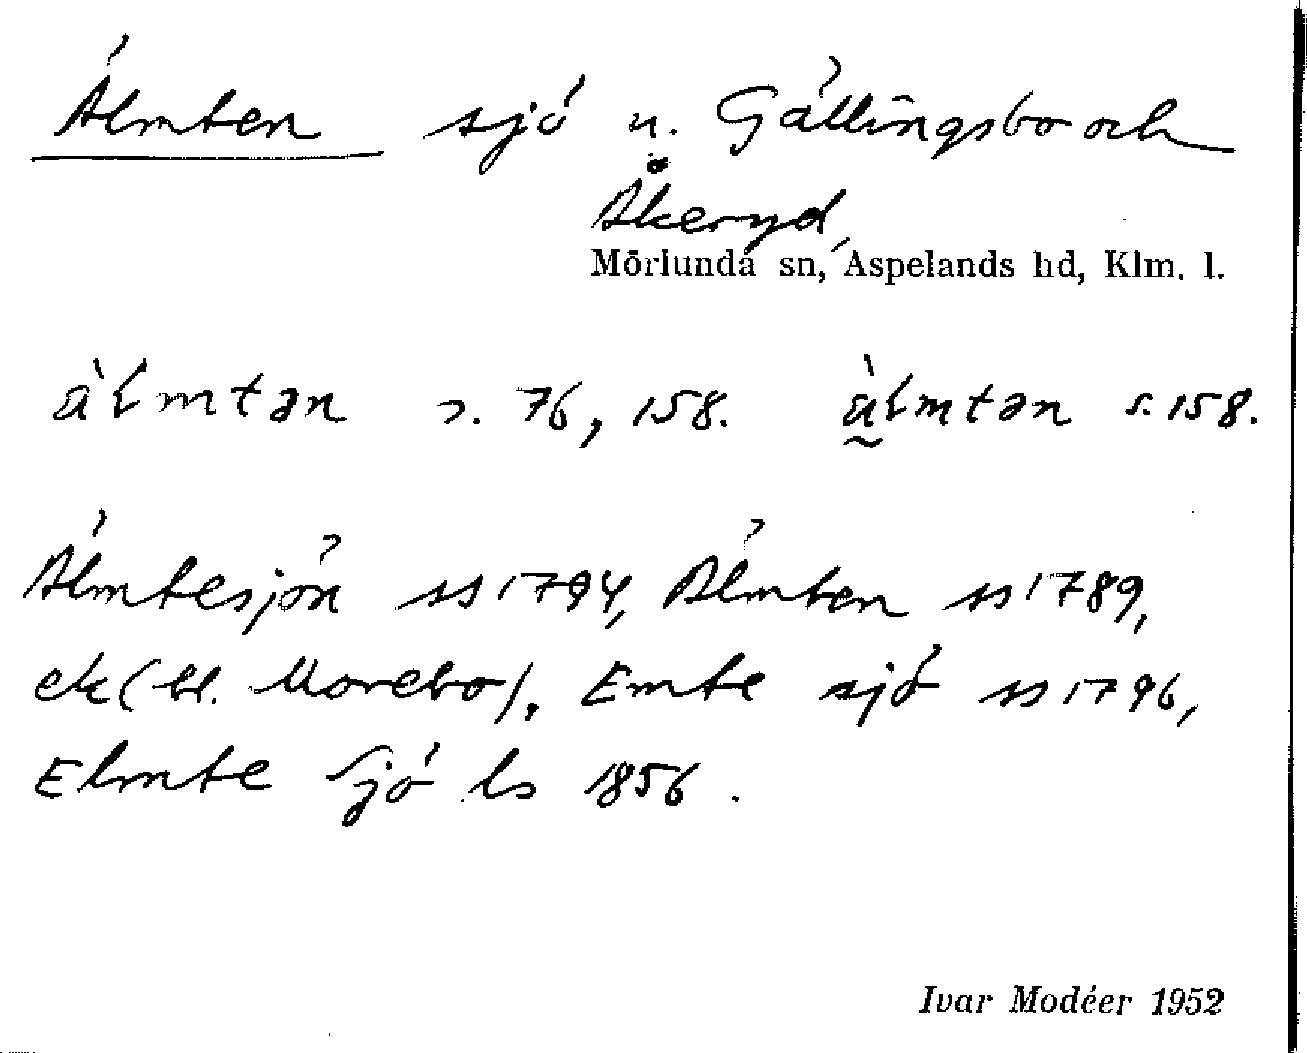 Älmten sjö u. Gällingsbo och
Åkeryd,
Mörlunda sn, Aspelands hd, Klm. l.
àlmtən s. 76, 158. àlmtən s. 158.
Älmtesjön ss 1794, Älmten ss 1789,
ek (bl. Morebo), Emte sjö ss 1796,
Elmte Sjö ls 1856.
Ivar Modéer 1952